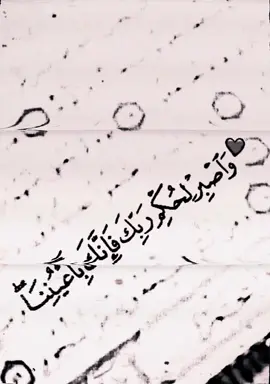 وَاَصْبِرْ لِحُكْمِ رَبِّكَ فَإِنَّكَ بِأَعْيُنِنَا ۖ